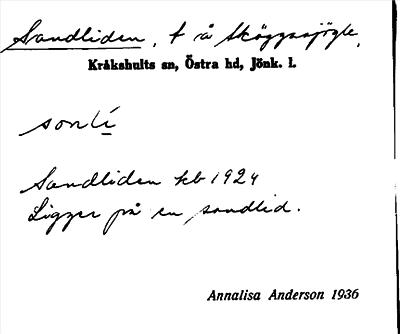 Sandliden, t å Skäggssjögle,
Kråkshults sn, Östra hd, Jönk. l.
sonlí
Sandliden kb 1924
Ligger på en sandlid.
Annalisa Anderson 1936